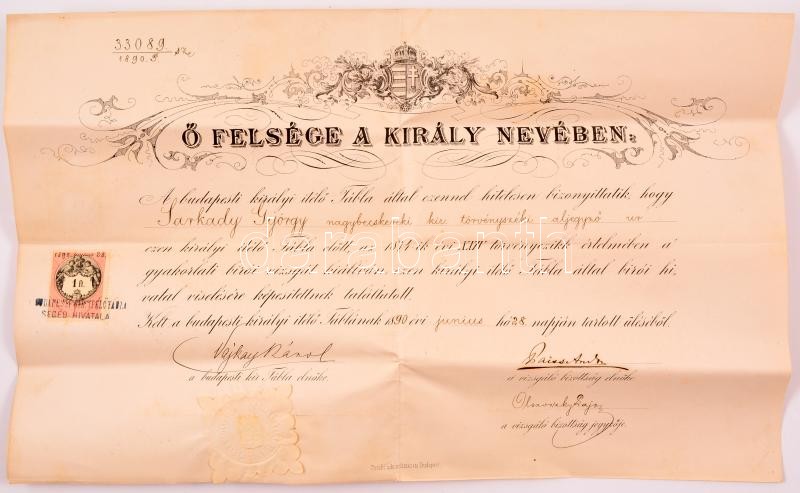 33089
1890. sz.
Ő FELSÉGE A KIRÁLY NEVÉBEN:
A budapesti királyi itélő Tábla által ezennel hitelesen bizonyittatik, hogy
Sarkady György nagybecskereki kir. törvényszéki aljegyző ur
ezen királyi itélő Tábla előtt, az 1874-ik évi XXIV törvényczikk értelmében a
gyakorlati birói vizsgát kiállván, ezen királyi itélő Tábla által birói hi,
vatal viselésére képesitettnek találtatott.
Kelt a budapesti királyi itélő Táblának 1890 évi junius hó 28. napján tartott üléséből.
1 ft.
SEGÉD HIVATALA
Vajkay Károl
a budapesti kir. Tábla elnöke.
a vizsgáló bizottság elnöke.
a vizsgáló bizottság jegyzője.
darabanth